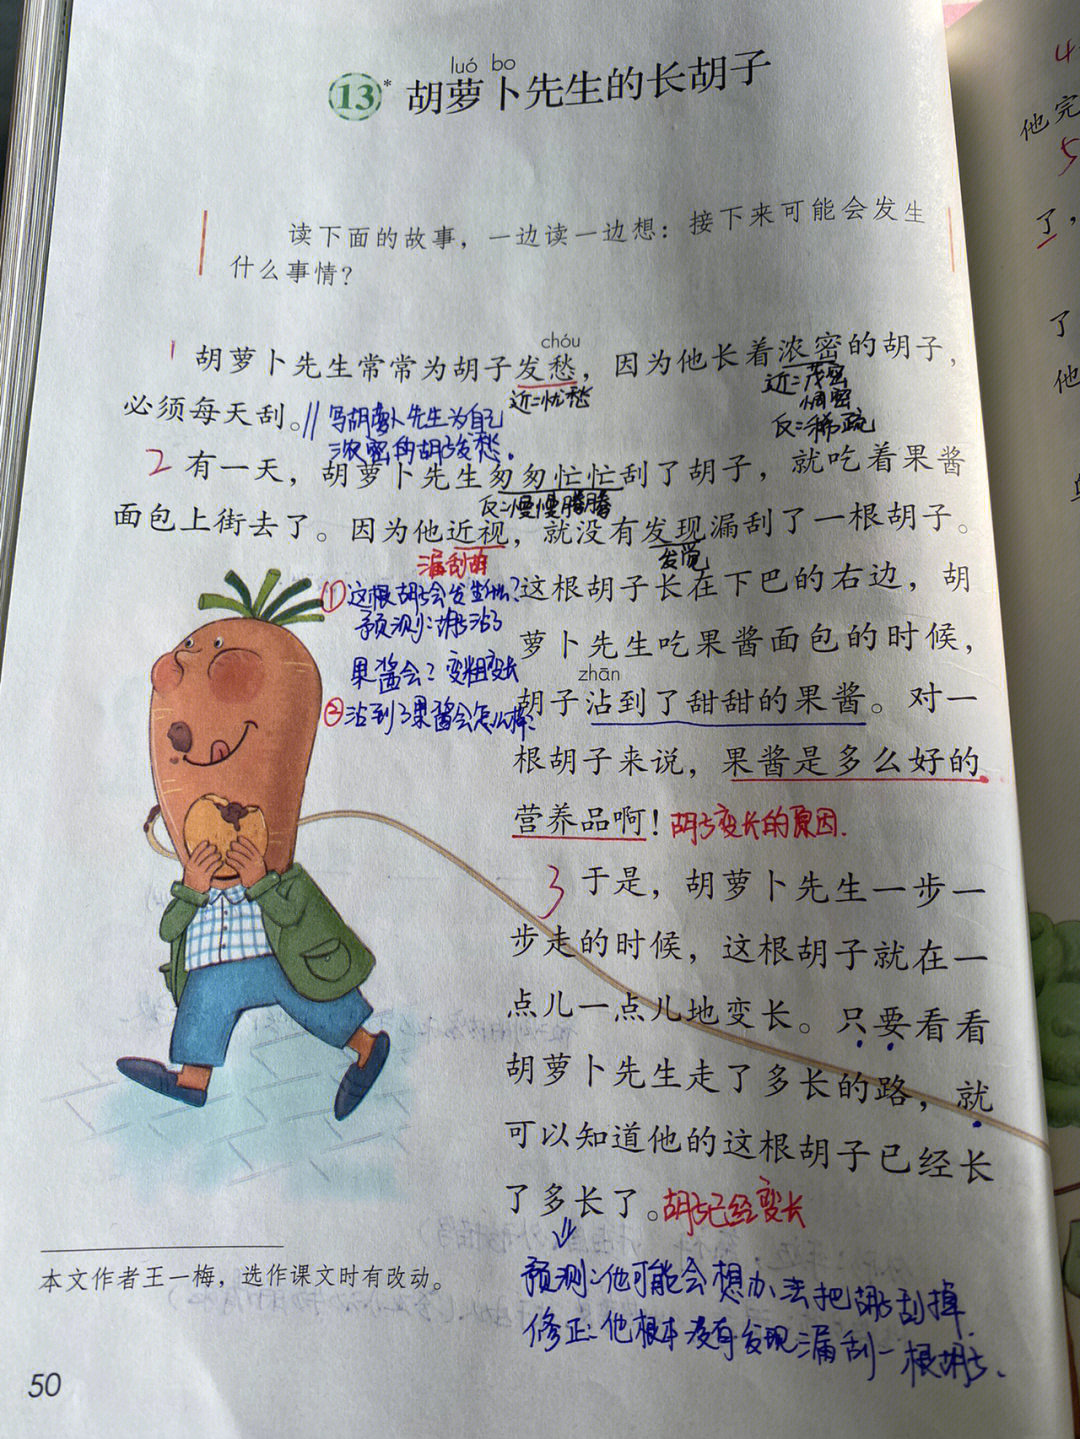 luó bo
13* 胡萝卜先生的长胡子
读下面的故事，一边读一边想：接下来可能会发生
什么事情？
chóu
1 胡萝卜先生常常为胡子发愁，因为他长着浓密的胡子，
近：忧愁
近：茂密
稠密
反：稀疏
必须每天刮。// 写胡萝卜先生为自己
浓密的胡子发愁。
2 有一天，胡萝卜先生匆匆忙忙刮了胡子，就吃着果酱
反：慢慢腾腾
面包上街去了。因为他近视，就没有发现漏刮了一根胡子。
漏刮
发觉
①这根胡子会发生什么？
预测：胡子沾了
果酱会？变粗变长
②沾到了果酱会怎么样
这根胡子长在下巴的右边，胡
萝卜先生吃果酱面包的时候，
zhān
胡子沾到了甜甜的果酱。对一
根胡子来说，果酱是多么好的
营养品啊！胡子变长的原因.
3 于是，胡萝卜先生一步一
步走的时候，这根胡子就在一
点儿一点儿地变长。只要看看
胡萝卜先生走了多长的路，就
可以知道他的这根胡子已经长
了多长了。胡子已经变长
预测：他可能会想办法把胡子刮掉.
修正：他根本没有发现漏刮一根胡子.
本文作者王一梅，选作课文时有改动。
50
4
他完
5
了，
了
他